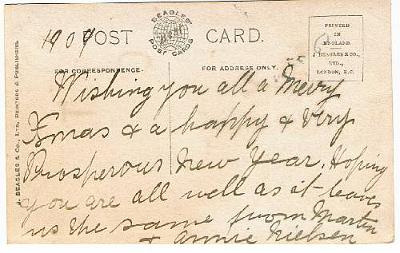 1909
POST CARD.
BEAGLES'
POST CARDS
PRINTED
IN
ENGLAND
J. BEAGLES & CO.,
LTD.,
LONDON, E.C.
FOR CORRESPONDENCE.
FOR ADDRESS ONLY.
J. BEAGLES & CO., LTD., PRINTERS & PUBLISHERS.
Wishing you all a Merry
Xmas & a happy & very
Prosperous New Year. Hoping
you are all well as it leaves
us the same from Martin
& Annie Nielsen